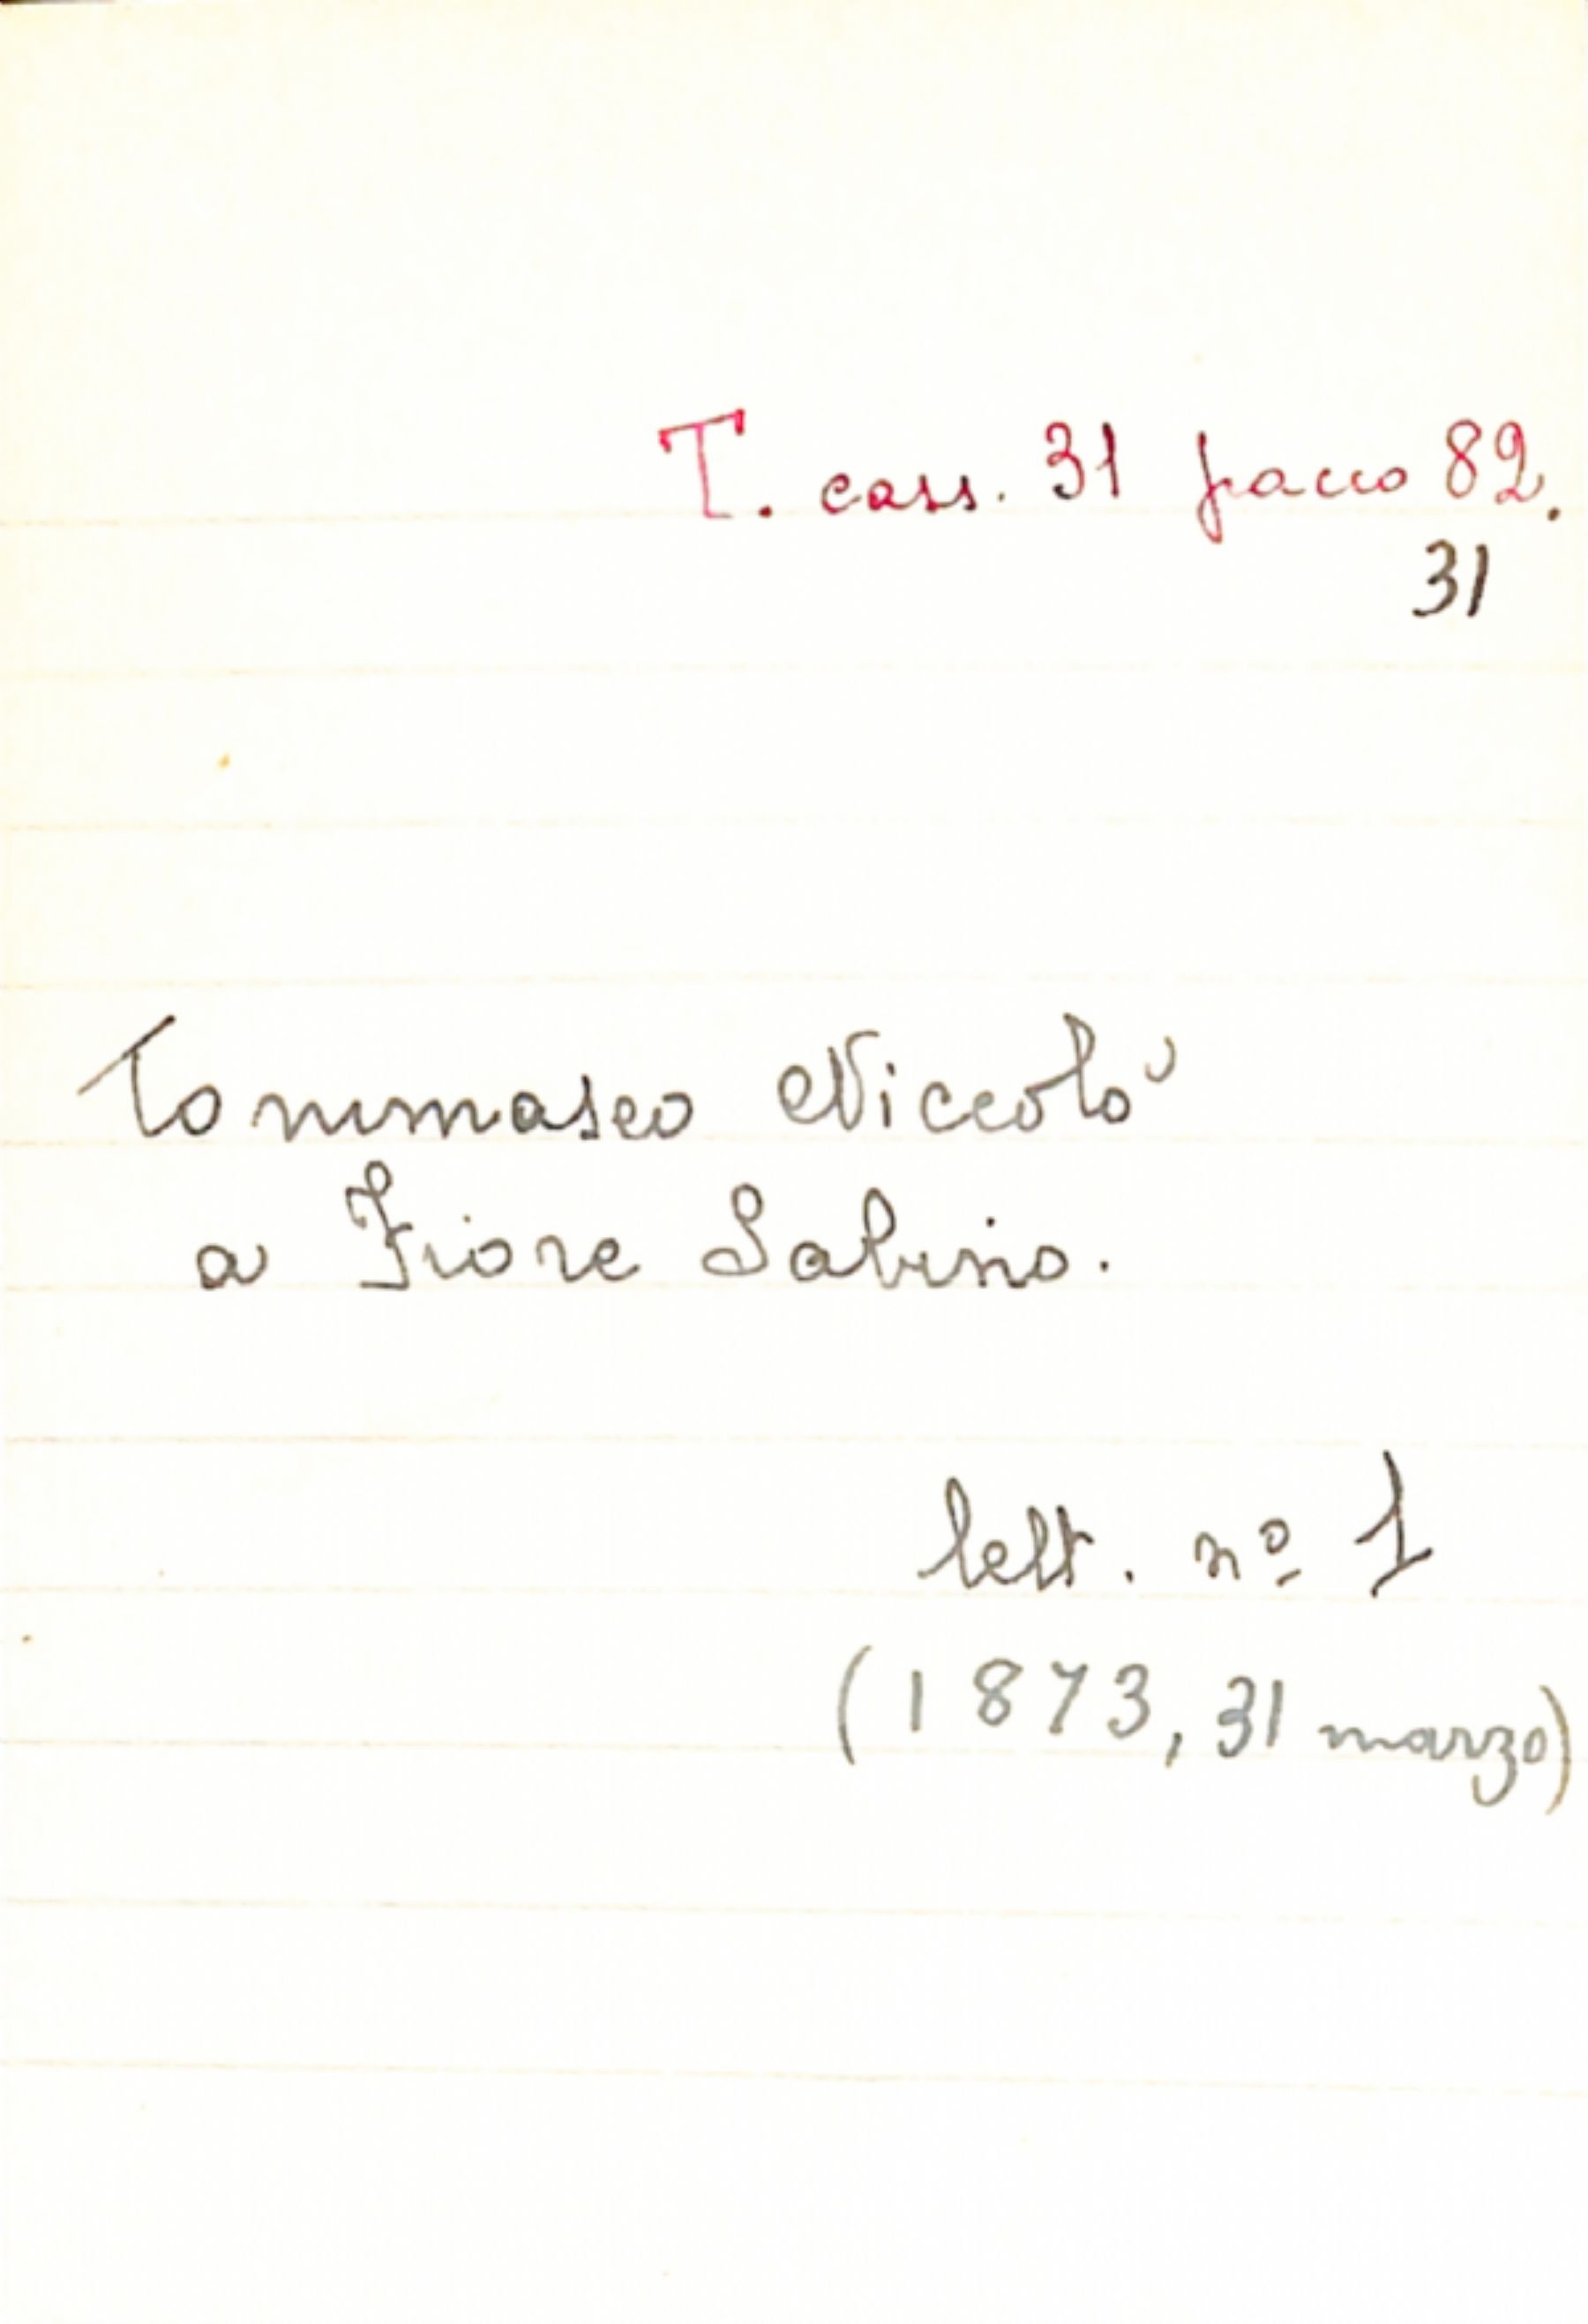 T. cass. 31 pacco 82.
31
Tommaseo Niccolò
a Fiore Sabino.
lett. nº 1
(1873, 31 marzo)